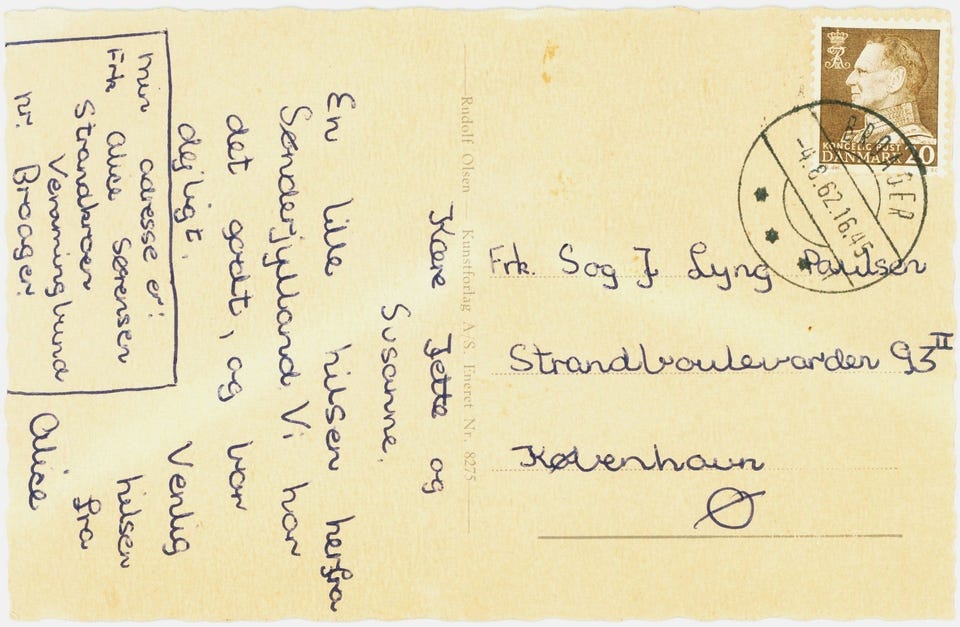 Kære Jette og
Susanne.
En lille hilsen herfra
Sønderjylland. Vi har
det godt, og bor
dejligt.
Venlig
hilsen
fra
Alice
min adresse er:
Frk Alice Sørensen
Strandkroen
Vemmingbund
nr. Broager.
Rudolf Olsen — Kunstforlag A/S. Eneret Nr. 8275
KONGELIG POST
DANMARK 20
BROAGER
-4.8.62.16.45
Frk. S og J Lyng Paulsen
Strandboulevarden 93 II
København
Ø